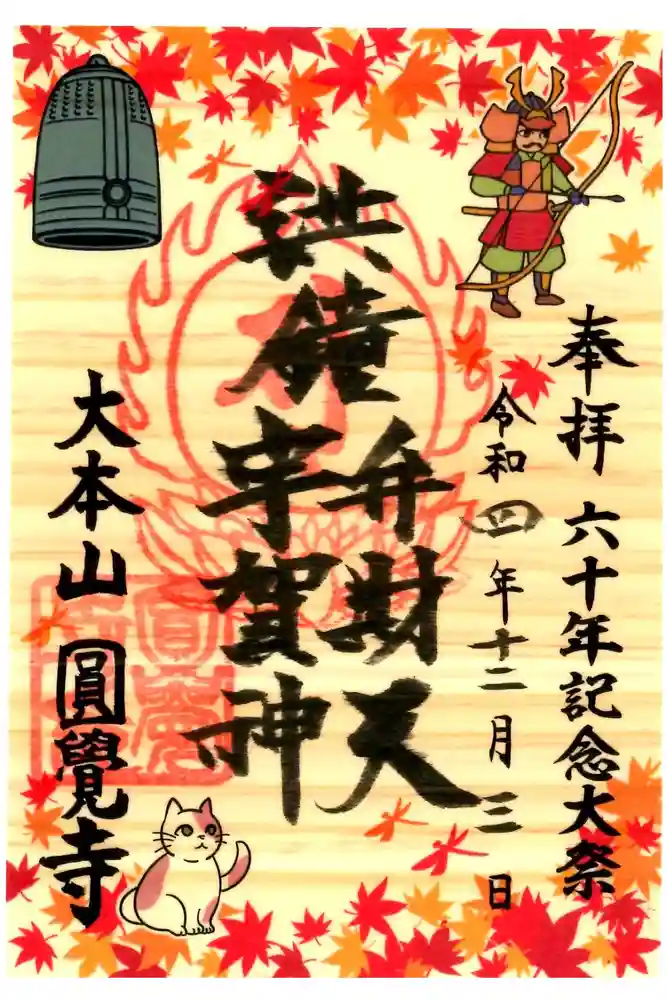 奉拝 六十年記念大祭
令和四年十二月三日
洪鐘
弁財天
宇賀神
大本山 圓覺寺